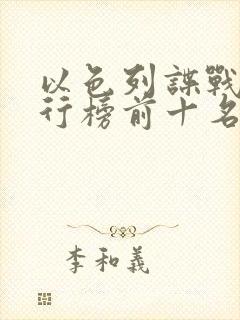 以色列諜戰
行榜前十名
李和義